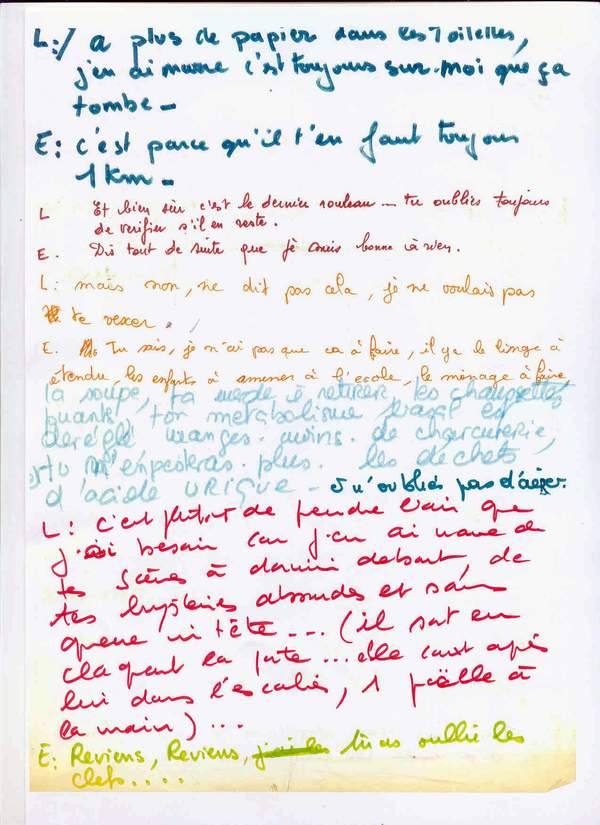 L:/ a plus de papier dans les Toilettes,
j'en ai marre c'est toujours sur moi que ça
tombe_
E: c'est parce qu'il t'en faut toujours
1 km_
L Et bien sûr c'est le dernier rouleau _ tu oublies toujours
de verifier s'il en reste.
E. Dis tout de suite que je suis bonne à rien.
L: mais non, ne dit pas cela, je ne voulais pas
te vexer.
E. Tu sais, je n'ai pas que ca à faire, il y a le linge à
étendre, les enfants à amener à l'ecole, le ménage à faire
la soupe, ta merde à retirer, les chaussettes
puantes, ton metabolisme basal est
dereglé manges. moins. de charcuterie,
tu m'empesteras. plus. les dechets,
d'acide URIQUE _ et n'oublies pas d'aérer.
L: c'est plutot de prendre l'air que
j'ai besoin car j'en ai marre de
tes scènes à dormir debout, de
tes hystéries absurdes et sans
queue ni tête ... (il sort en
claquant la porte ... elle court après
lui dans l'escalier, 1 poëlle à
la main) ...
E: Reviens, Reviens, tu as oublié les
clefs....